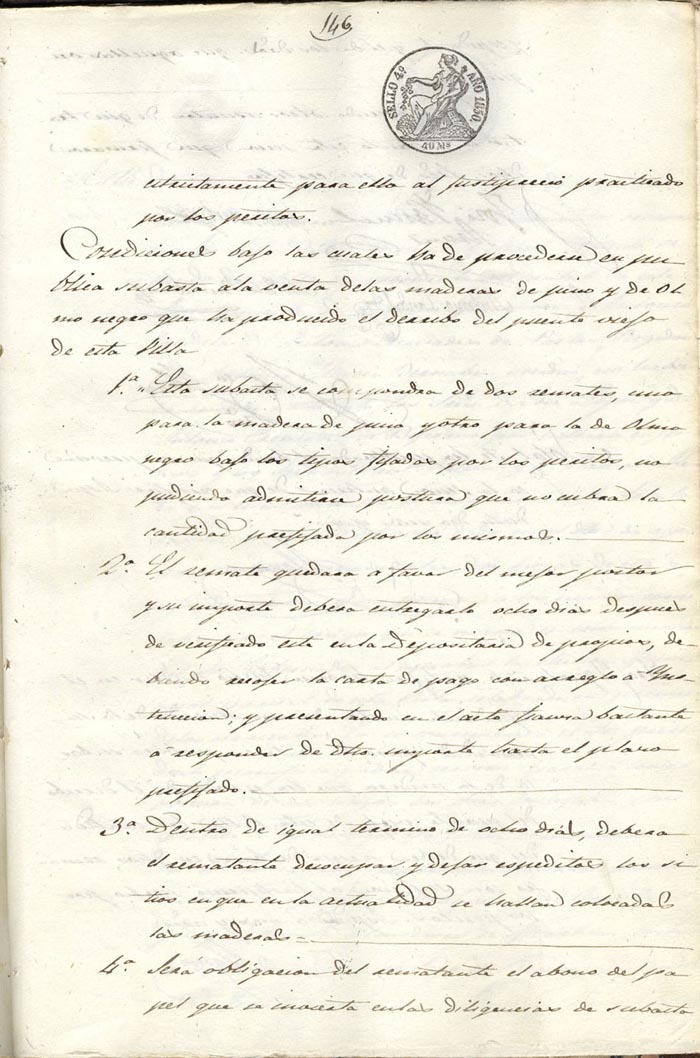 146
SELLO 4º AÑO 1850.
40 Ms
estrictamente para ello al justiprecio practicado
por los peritos.
Condiciones bajo las cuales ha de procederse en pu
blica subasta á la venta de las maderas de pino y de Ol
mo negro que ha producido el derribo del puente viejo
de esta Villa
1ª Esta subasta se compondra de dos remates, uno
para la madera de pino y otro para la de Olmo
negro bajo los tipos fijados por los peritos, no
pudiendo admitirse postura que no cubra la
cantidad prefijada por los mismos.
2ª El remate quedara a favor del mejor postor
y su importe debera entregarlo ocho dias despues
de verificado este en la Depositaria de propios, de-
biendo recojer la carta de pago con arreglo a Yns-
truccion; y presentando en el acto fianza bastante
á responder de dho. importe hasta el plazo
prefijado.
3ª Dentro de igual termino de ocho dias, debera
el rematante desocupar y dejar espeditos los si-
tios en que en la actualidad se hallan colocadas
las maderas
4ª Será obligacion del rematante el abono del pa
pel que se invierta en las diligencias de subasta